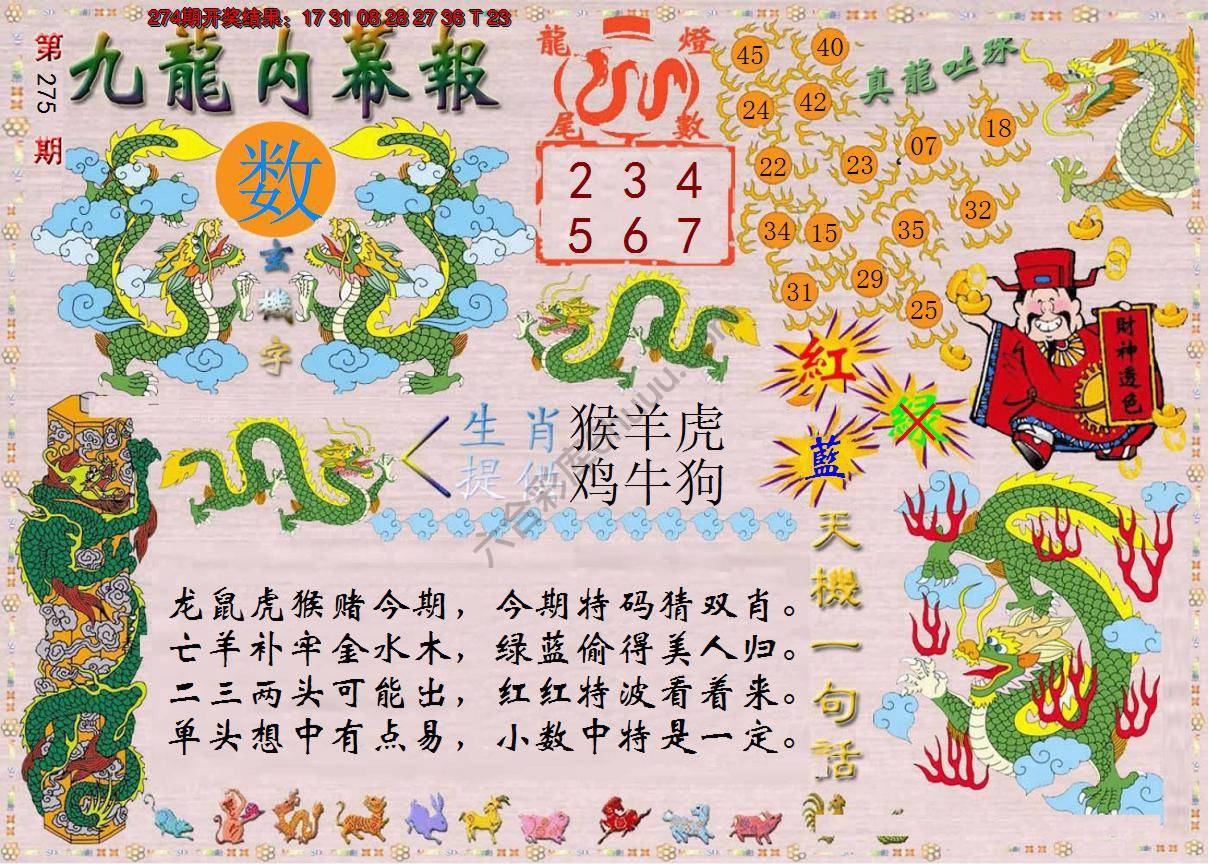 274期开奖结果：17 31 08 28 27 36 T 23
第275期
九龍内幕報
数
玄機字
龍燈
尾數
2 3 4
5 6 7
真龍吐珠
45 40
24 42
22 23 07 18
34 15 35 32
31 29 25
紅
绿
藍
財神透色
生肖提供
猴羊虎
鸡牛狗
天機一句話
龙鼠虎猴赌今期，今期特码猜双肖。
亡羊补牢金水木，绿蓝偷得美人归。
二三两头可能出，红红特波看着来。
单头想中有点易，小数中特是一定。